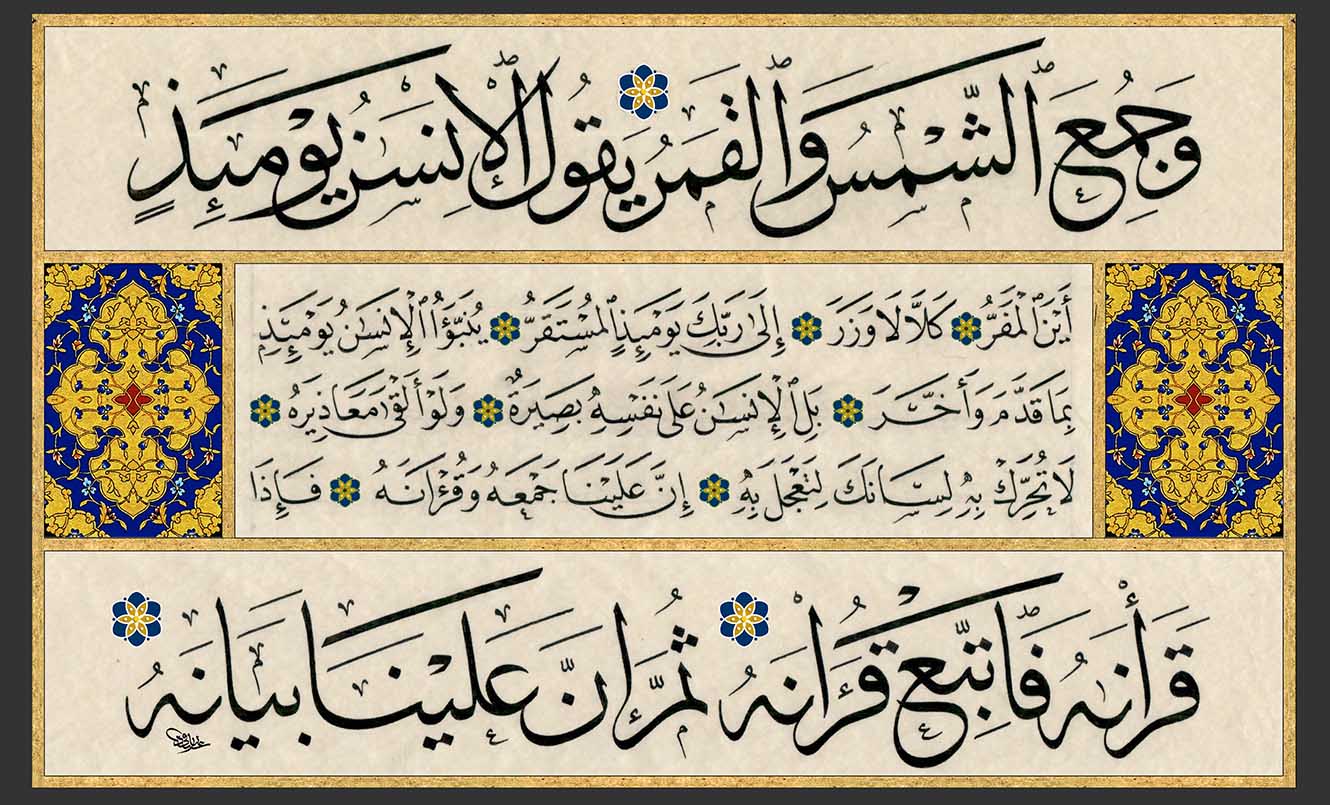 وَجُمِعَ ٱلشَّمْسُ وَٱلْقَمَرُ يَقُولُ ٱلْإِنسَٰنُ يَوْمَئِذٍ
أَيْنَ ٱلْمَفَرُّ كَلَّا لَا وَزَرَ إِلَىٰ رَبِّكَ يَوْمَئِذٍ ٱلْمُسْتَقَرُّ يُنَبَّؤُا۟ ٱلْإِنسَٰنُ يَوْمَئِذٍ
بِمَا قَدَّمَ وَأَخَّرَ بَلِ ٱلْإِنسَٰنُ عَلَىٰ نَفْسِهِۦ بَصِيرَةٌ وَلَوْ أَلْقَىٰ مَعَاذِيرَهُۥ
لَا تُحَرِّكْ بِهِۦ لِسَانَكَ لِتَعْجَلَ بِهِۦ إِنَّ عَلَيْنَا جَمْعَهُۥ وَقُرْءَانَهُۥ فَإِذَا
قَرَأْنَٰهُ فَٱتَّبِعْ قُرْءَانَهُۥ ثُمَّ إِنَّ عَلَيْنَا بَيَانَهُۥ